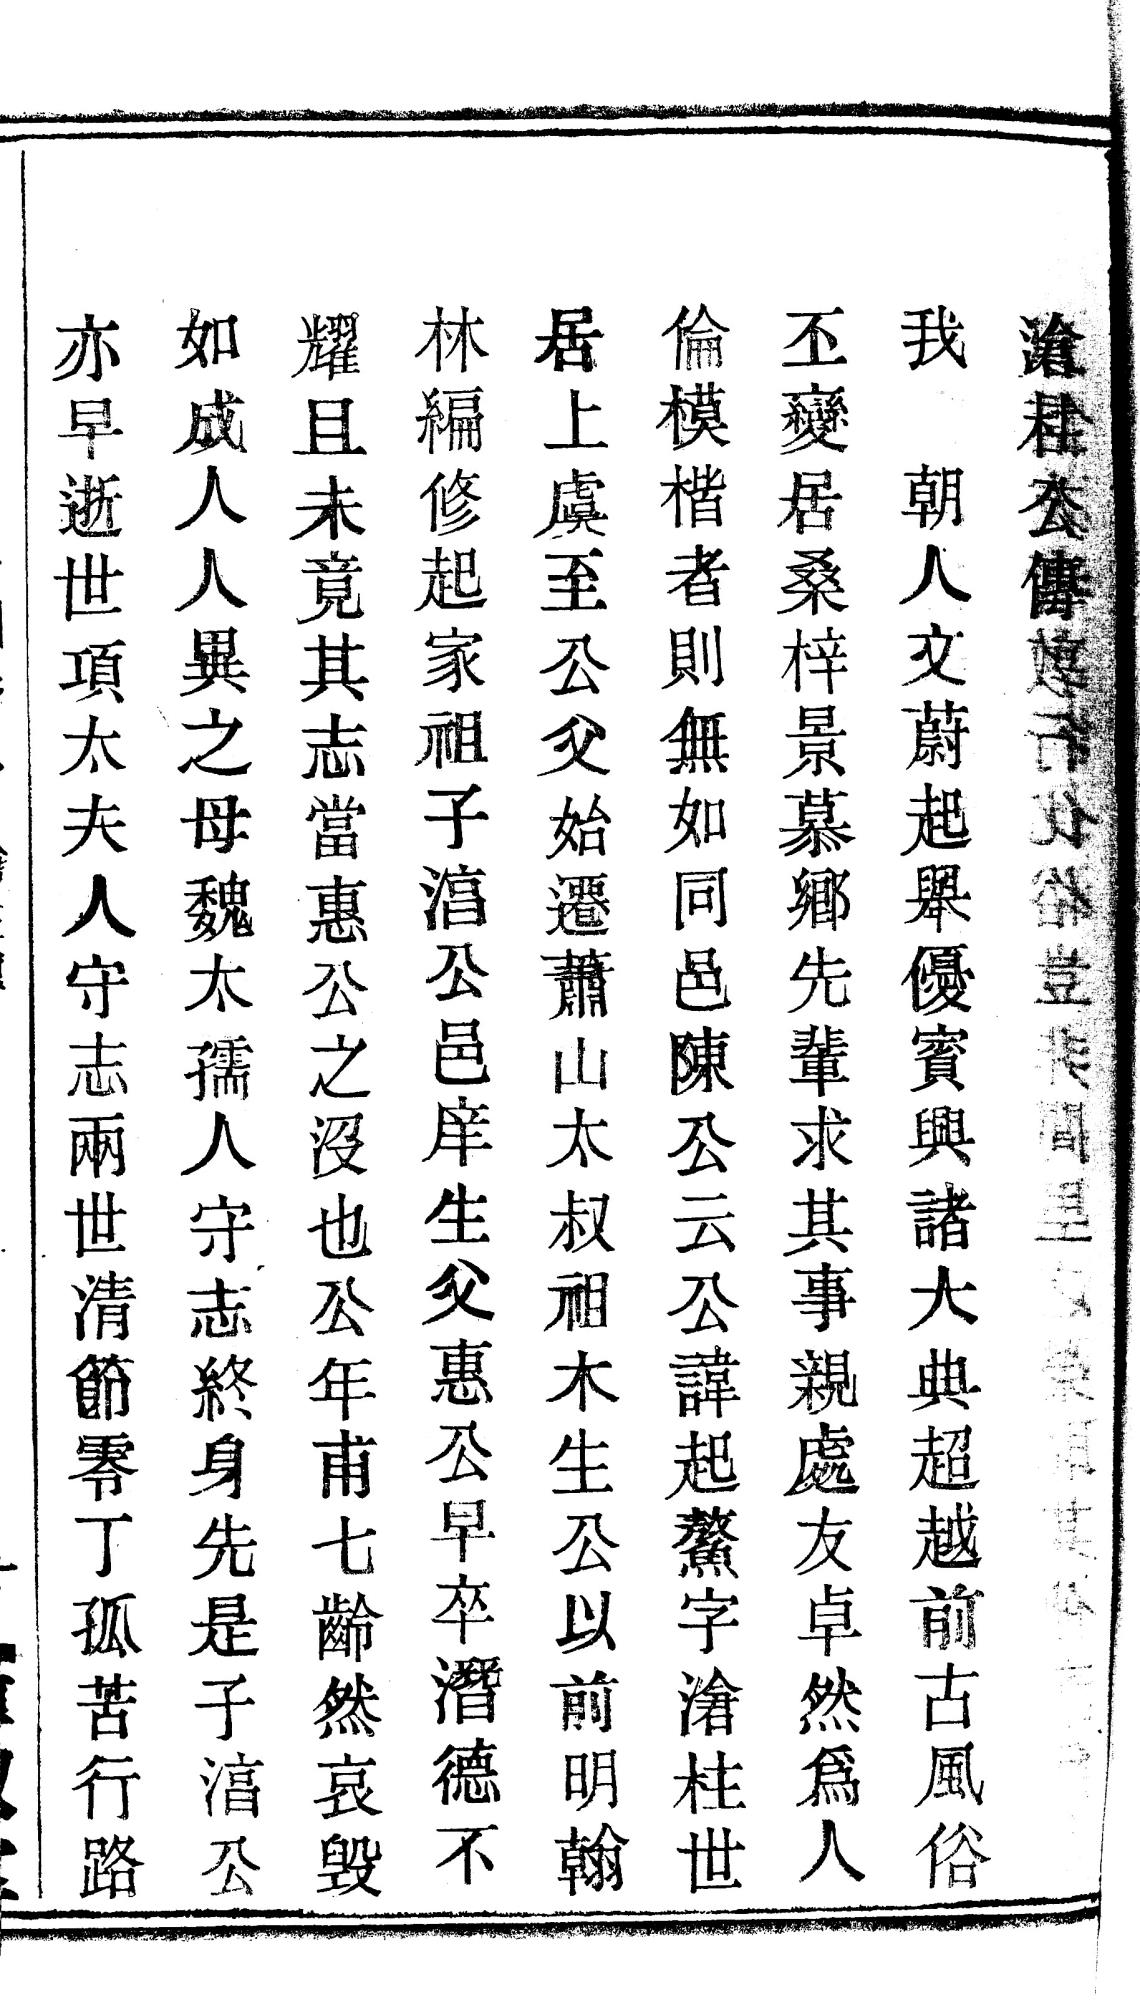 滄柱公傳
我　朝人文蔚起舉優賓興諸大典超越前古風俗
丕變居桑梓景慕鄉先輩求其事親處友卓然爲人
倫模楷者則無如同邑陳公云公諱起鰲字滄柱世
居上虞至公父始遷蕭山太叔祖木生公以前明翰
林編修起家祖子湻公邑庠生父惠公早卒潛德不
耀且未竟其志當惠公之沒也公年甫七齡然哀毀
如成人人異之母魏太孺人守志終身先是子湻公
亦早逝世項太夫人守志兩世清節零丁孤苦行路